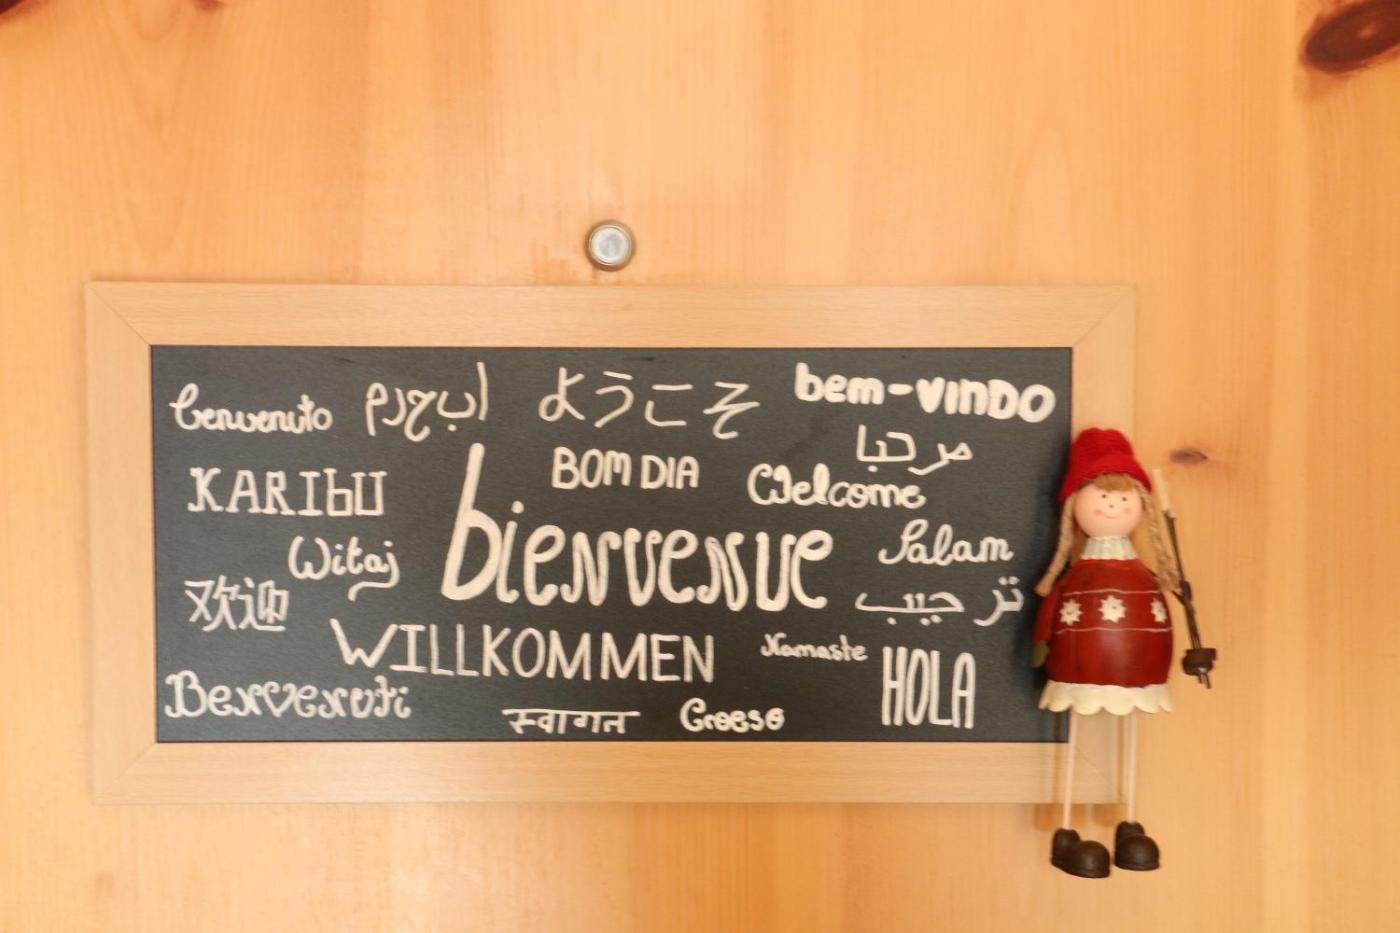 benvenuto
ようこそ
bem-vindo
مرحبا
BOM DIA
KARIbU
Welcome
bienvenue
Salam
Witaj
欢迎
تر حيب
WILLKOMMEN
Namaste
HOLA
Benvenuti
स्वागत
Croeso